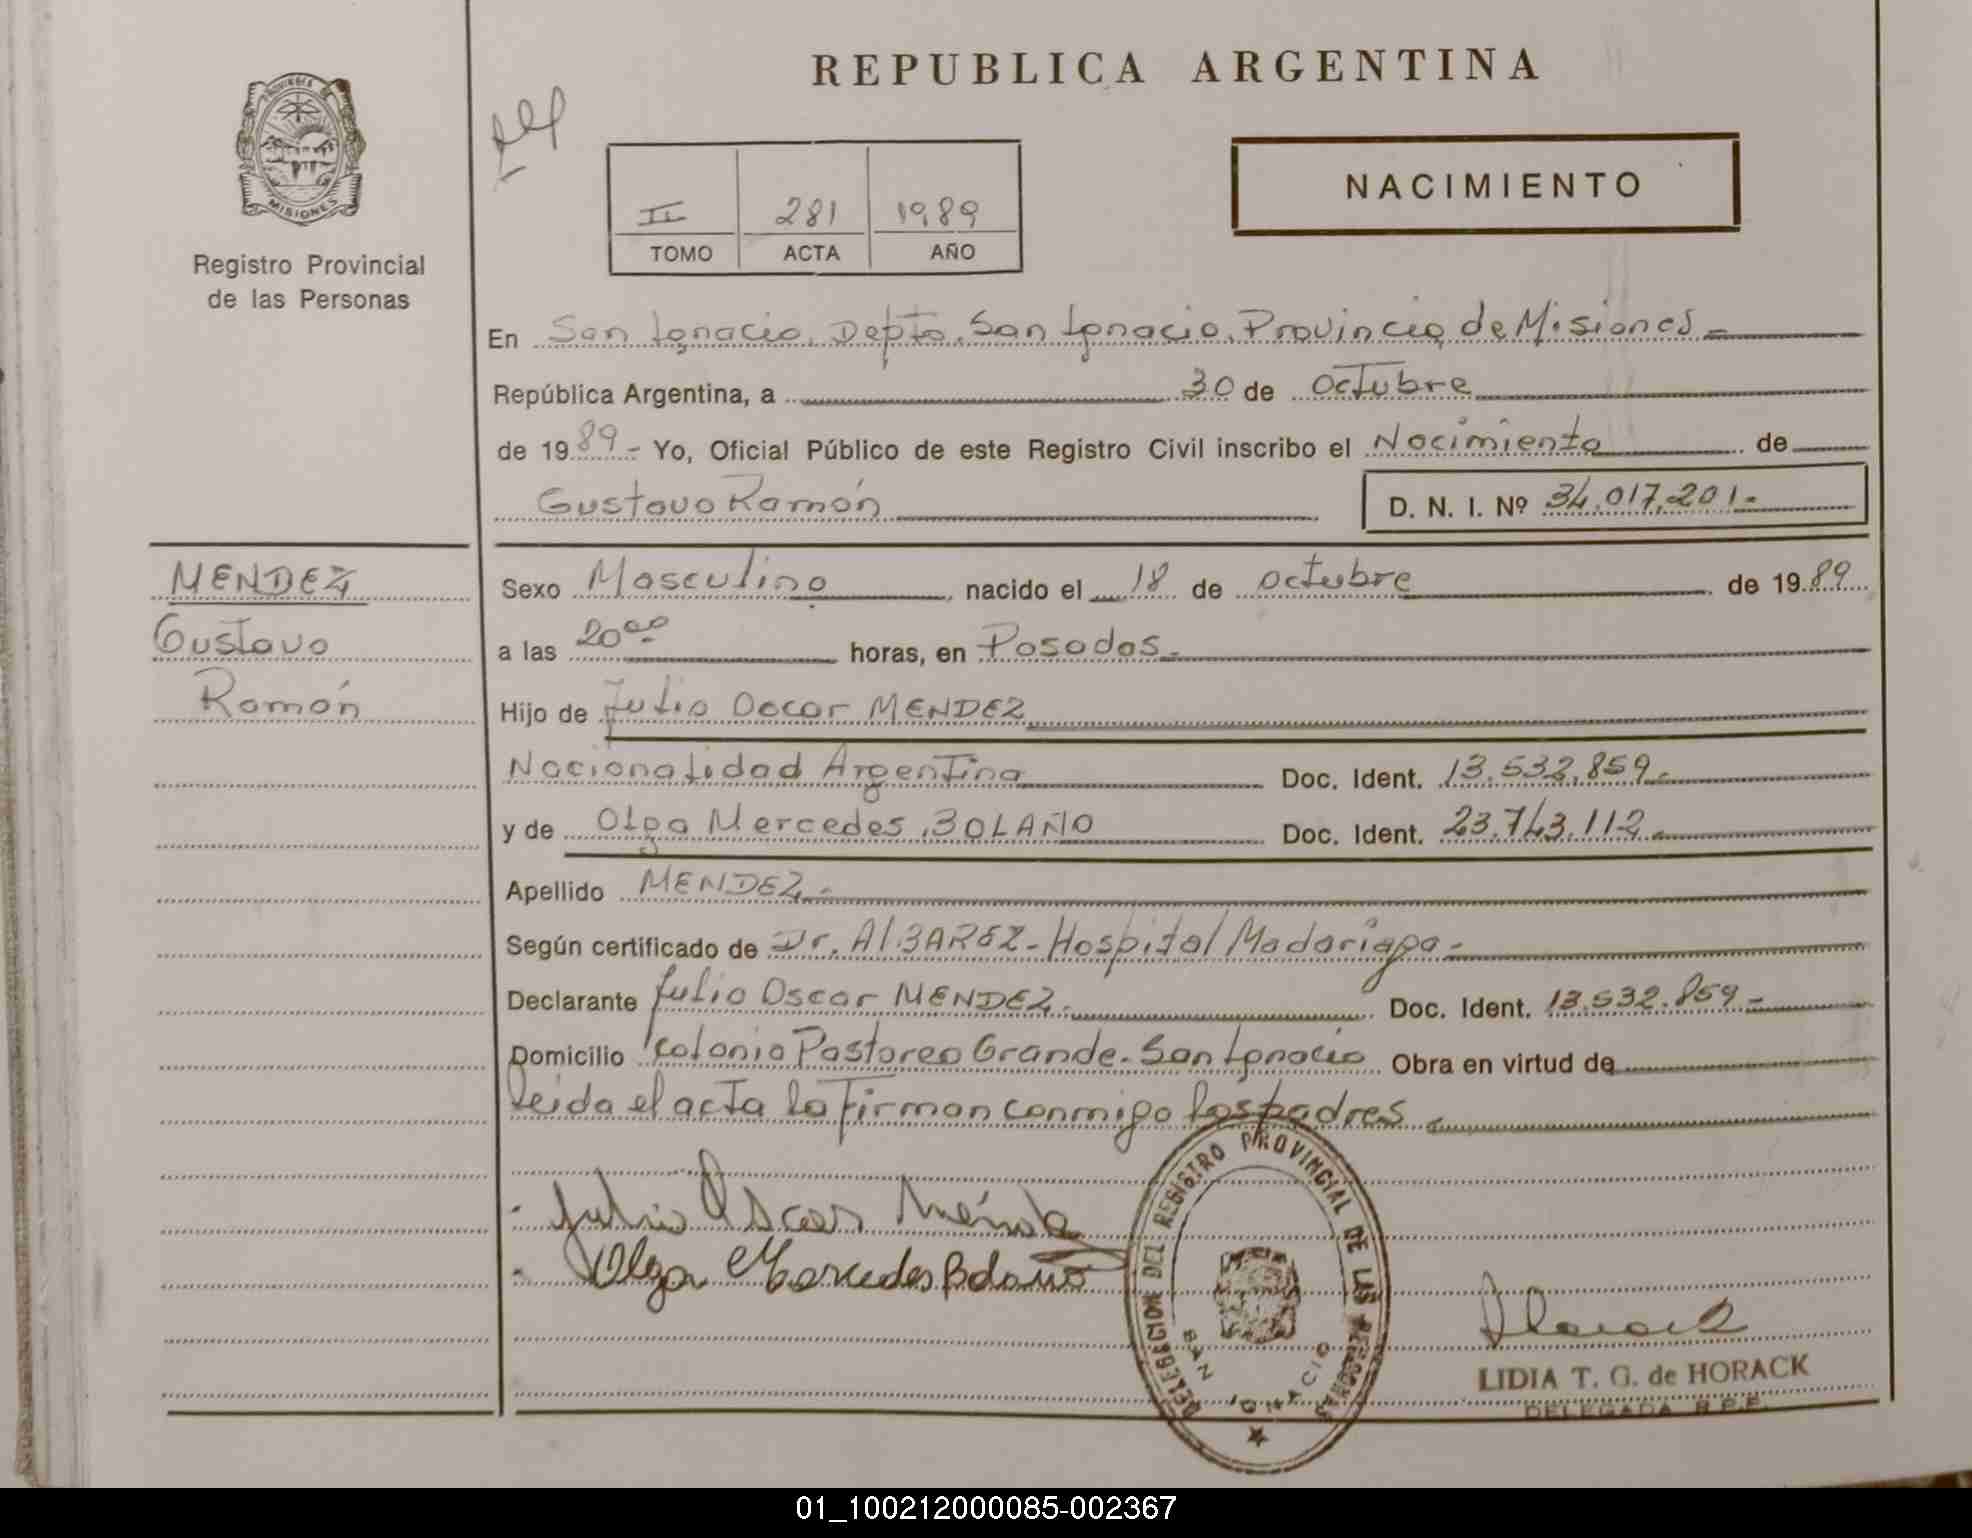 REPUBLICA ARGENTINA
PROVINCIA DE
MISIONES
Registro Provincial
de las Personas
II 281 1989
TOMO ACTA AÑO
NACIMIENTO
En San Ignacio, Depto. San Ignacio, Provincia de Misiones.-
República Argentina, a 30 de octubre
de 1989.- Yo, Oficial Público de este Registro Civil inscribo el Nacimiento de
Gustavo Ramón D. N. I. Nº 34.017.201.-
MENDEZ
Gustavo
Ramón
Sexo Masculino, nacido el 18 de octubre de 1989
a las 20 00 horas, en Posadas.-
Hijo de Julio Oscar MENDEZ
Nacionalidad Argentina Doc. Ident. 13.532.859.-
y de Olga Mercedes BOLAÑO Doc. Ident. 23.743.112.-
Apellido MENDEZ.-
Según certificado de Dr. ALBAREZ - Hospital Madariaga.-
Declarante Julio Oscar MENDEZ.- Doc. Ident. 13.532.859.-
Domicilio Colonia Pastoreo Grande - San Ignacio Obra en virtud de
leida el acta la Firman conmigo los padres
Julio Oscar Méndez
Olga Mercedes Bolaño
DELEGACION DEL REGISTRO PROVINCIAL DE LAS PERSONAS
SAN IGNACIO
LIDIA T. G. de HORACK
DELEGADA R.P.P.
01_100212000085-002367